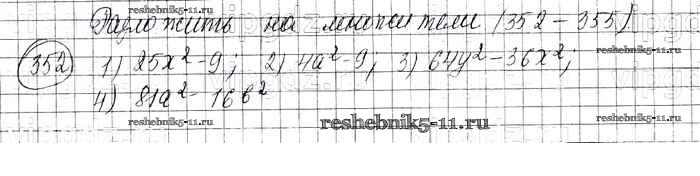 Разложить на множители (352 - 355)
352 1) 25x² - 9; 2) 4a² - 9; 3) 64y² - 36x²;
reshebnik5-11.ru reshebnik5-11.ru
4) 81a² - 16b²
reshebnik5-11.ru
reshebnik5-11.ru reshebnik5-11.ru